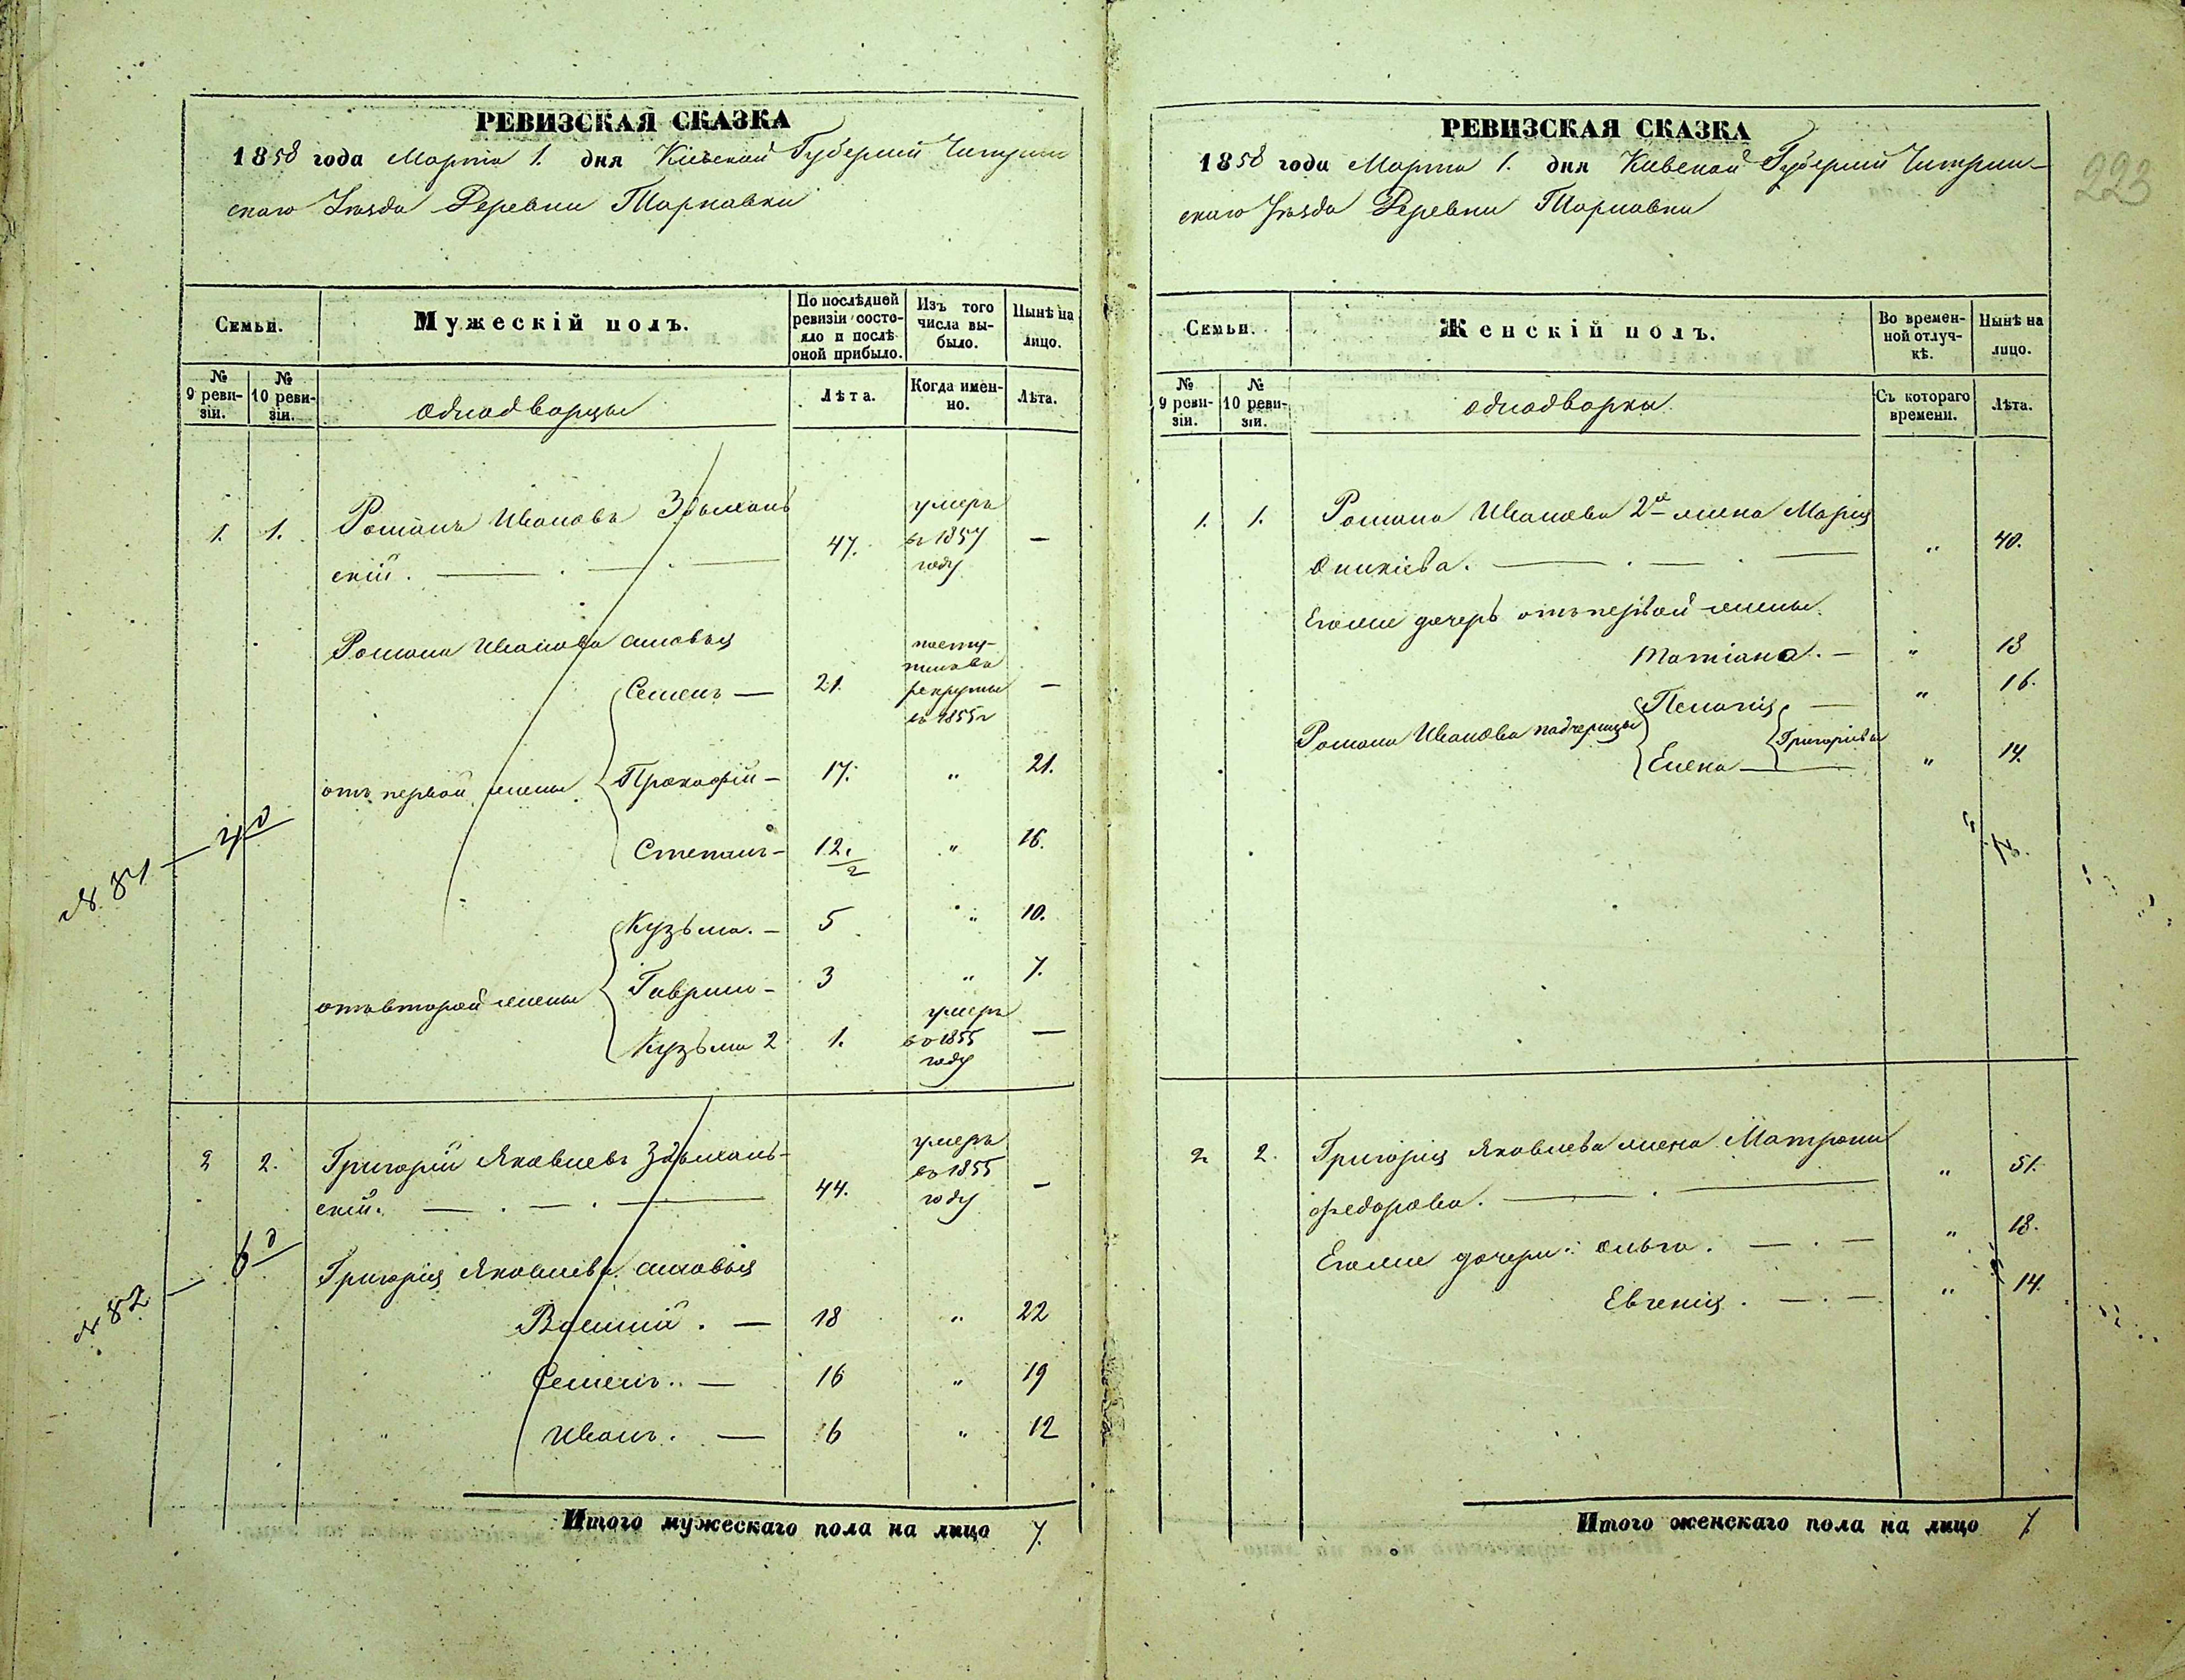 РЕВИЗСКАЯ СКАЗКА
1858 года Марта 1. дня Кіевской Губерніи Чигрин
скаго Уѣзда Деревни Тарнавки
Семьи.
Мужескій полъ.
По послѣдней ревизіи состояло и послѣ оной прибыло.
Изъ того числа выбыло.
Нынѣ на лицо.
№ 9 ревизіи.
№ 10 ревизіи.
однодворцы
Лѣта.
Когда именно.
Лѣта.
1. 1. Романъ Ивановъ
скій. 47. умеръ въ 1857 году —
Романа Иванова сыновья
Семенъ — 21. поступилъ въ рекруты въ 1855 г —
отъ первой жены Прокофій — 17. " 21.
Степанъ — 12. 2 " 16.
№ 81 —
Кузьма. — 5 " 10.
отъ второй жены Гаврило — 3 " 7.
Кузьма 2 1. умеръ въ 1855 году —
2 2. Григорій Яковлевъ
скій. 44. умеръ въ 1855 году —
№ 82 —
Григорія Яковлева сыновья
Василій. — 18 " 22
Семенъ. — 16 " 19
Иванъ. — 6 " 12
Итого мужескаго пола на лицо 7.
РЕВИЗСКАЯ СКАЗКА
1858 года Марта 1. дня Кіевской Губерніи Чигрин-
скаго Уѣзда Деревни Тарнавки
223
Семьи.
Женскій полъ.
Во временной отлучкѣ.
Нынѣ на лицо.
№ 9 ревизіи.
№ 10 ревизіи.
однодворки
Съ котораго времени.
Лѣта.
1. 1. Романа Иванова 2я жена Марія
Оникіева. " 40.
Егоже дочерь отъ первой жены
Татіана. — " 18
Романа Иванова падчерицы Пелагія — Григоріевы " 16.
Елена — " 14.
2 2. Григорія Яковлева жена Матрона
Федорова. " 51.
Егоже дочери: Ольга. — " 18.
Евгенія. — " 14.
Итого женскаго пола на лицо 7.